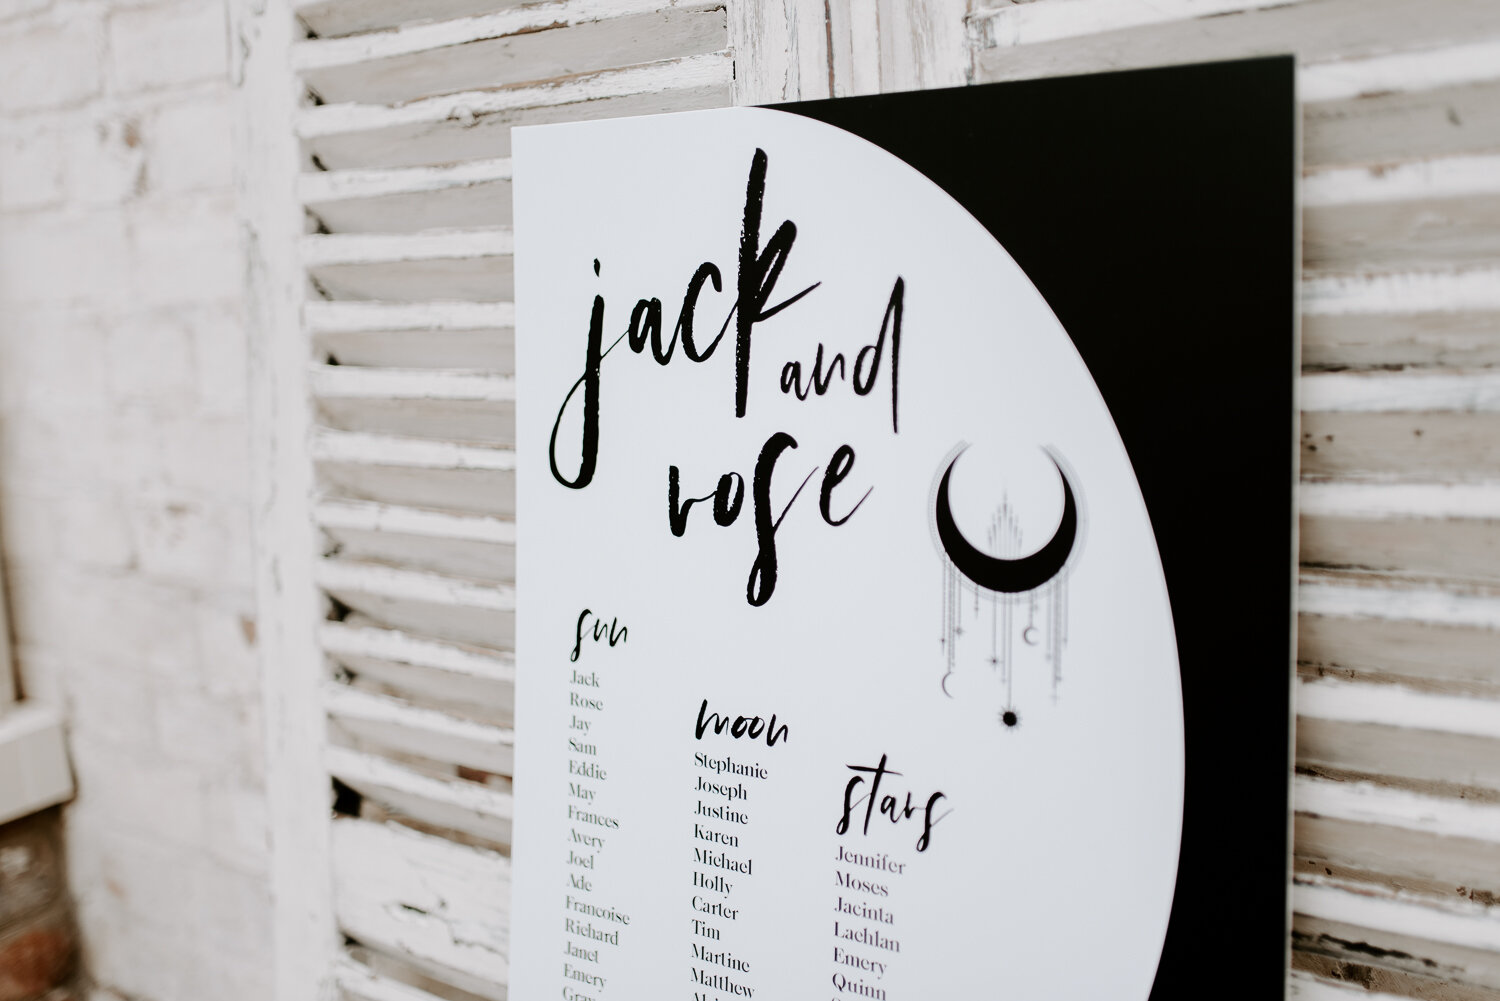 jack
and
rose
sun
Jack
Rose
Jay
Sam
Eddie
May
Frances
Avery
Joel
Ade
Francoise
Richard
Janet
Emery
moon
Stephanie
Joseph
Justine
Karen
Michael
Holly
Carter
Tim
Martine
Matthew
stars
Jennifer
Moses
Jacinta
Lachlan
Emery
Quinn